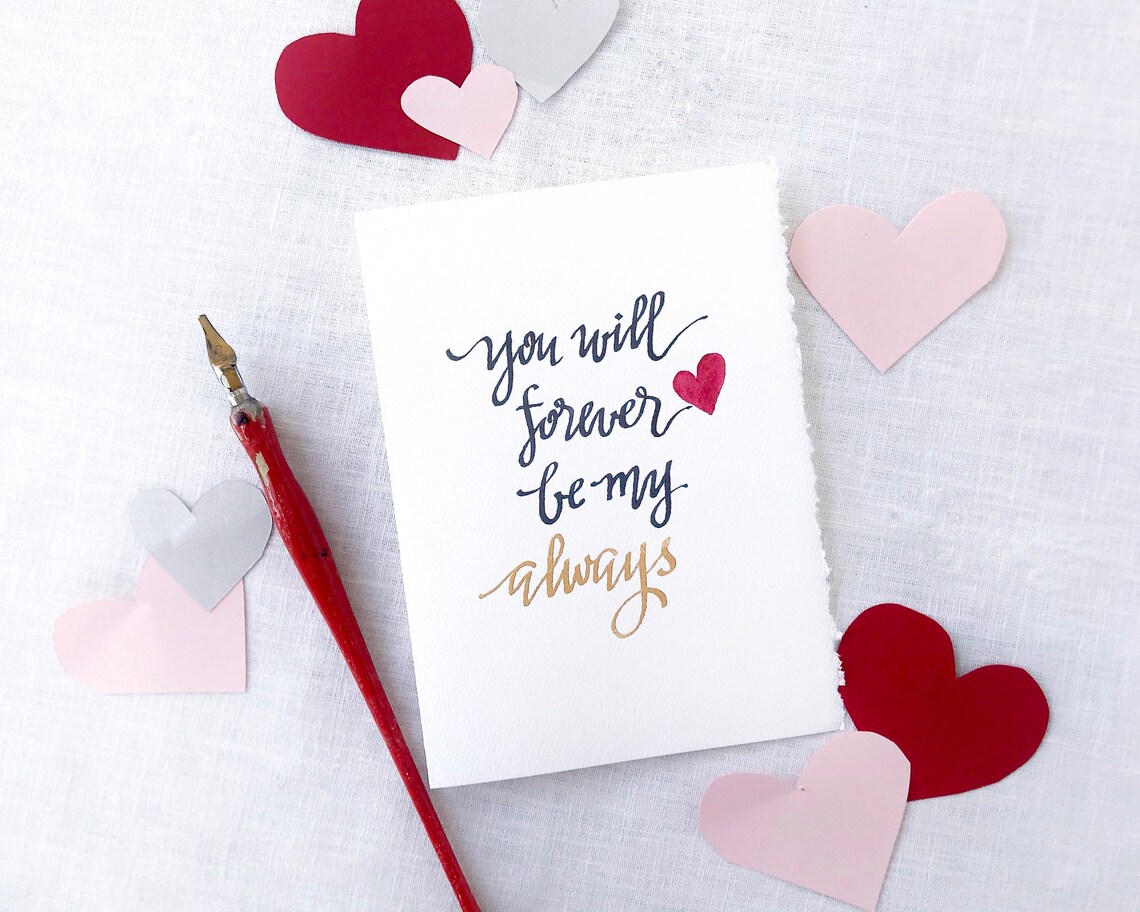 you will
forever
be my
always